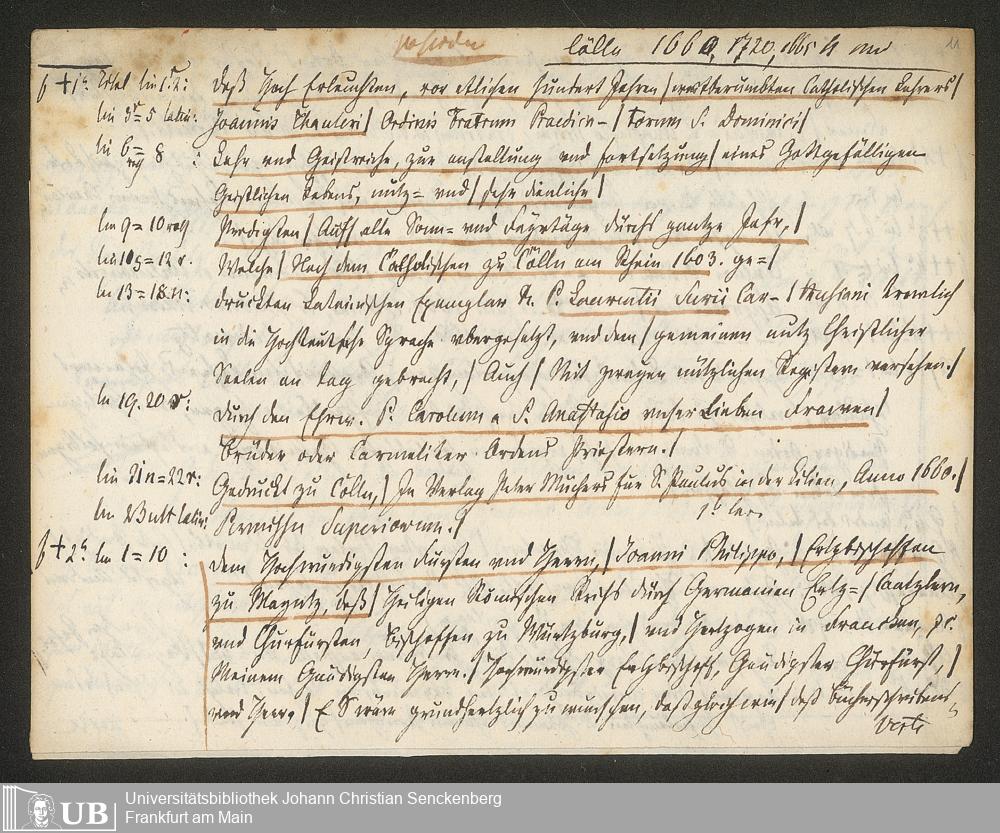 Cölln 1660, 1720, 1665
11
f + 1a Titel lin 1 r 2: Deß Hoch Erleuchten, vor etlichen hundert Jahren / weitberümbten Catholischen Lehrers /
lin 3 = 5 latin: Joannis Thauleri / Ordinis Fratrum Praedica- / torum S. Dominici /
lin 6 = 8 : Lehr und Geistreiche, zur anstellung und fortsetzung / eines Gottgefälligen
Geistlichen Lebens, nutz= und / sehr dienliche /
lin 9 = 10 Predigten / Auff alle Sonn= und Feyrtäge durchs gantze Jahr, /
= 12 r. Welche / Nach dem Catholischen zu Cölln am Rhein 1603. ge= /
lin 13 = 18 : druckten Lateinischen Exemplar R. P. Laurentii Surii Car- / thusiani trewlich
in die Hochteutsche Sprache ubergesetzt, und dem / gemeinen nutz Christlicher
Seelen an tag gebracht, / Auch / Mit zweyen nützlichen Registern versehen. /
lin 19. 20 r: Durch den Ehrw. P. Carolum a S. Anastasio unser Lieben Frawen /
Brüder oder Carmeliter Ordens Priestern. /
lin 21 = 22 r: Gedruckt zu Cölln, / In Verlag Peter Muchers für S. Paulus in der Lilien, Anno 1660. /
lin 23 latin: Permissu Superiorum. /
f + 2a lin 1 = 10 : Dem Hochwürdigsten Fürsten und Herrn, / Joanni Philippo, / Ertzbischoffen
zu Mayntz, deß / Heiligen Römischen Reichs durch Germanien Ertz= / Cantzlern,
und Churfürsten, Bischoffen zu Würtzburg, / und Hertzogen in Francken, etc.
Meinem Gnädigsten Herrn. / Hochwürdigster Ertzbischoff, Gnädigster Churfürst, /
und Herr, / E S wäre grundhertzlich zu wünschen, daß gleich wie / deß bücherschreibens
verte
Universitätsbibliothek Johann Christian Senckenberg
Frankfurt am Main
UB